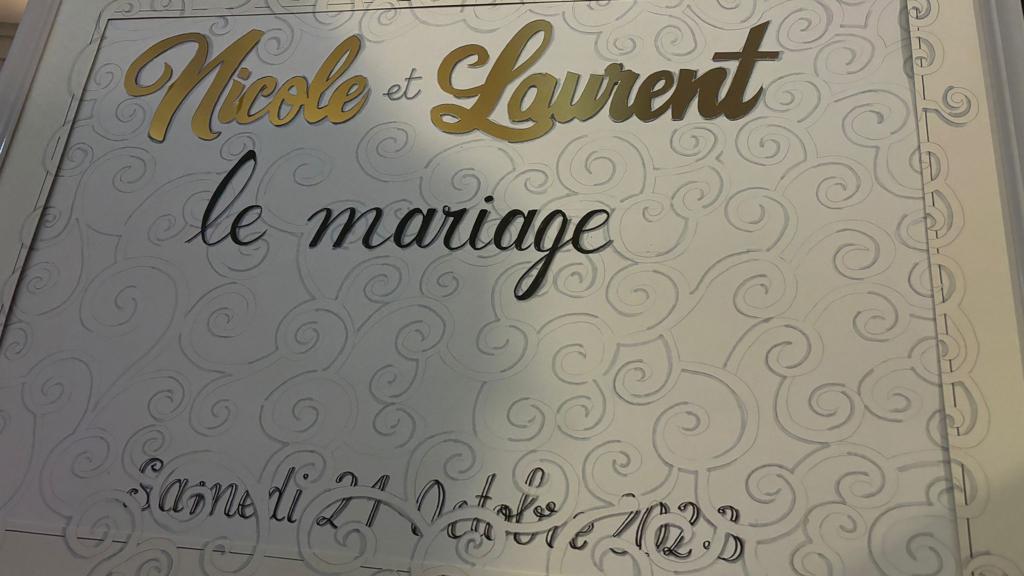 Nicole et Laurent
le mariage
Samedi 21 Octobre 2023